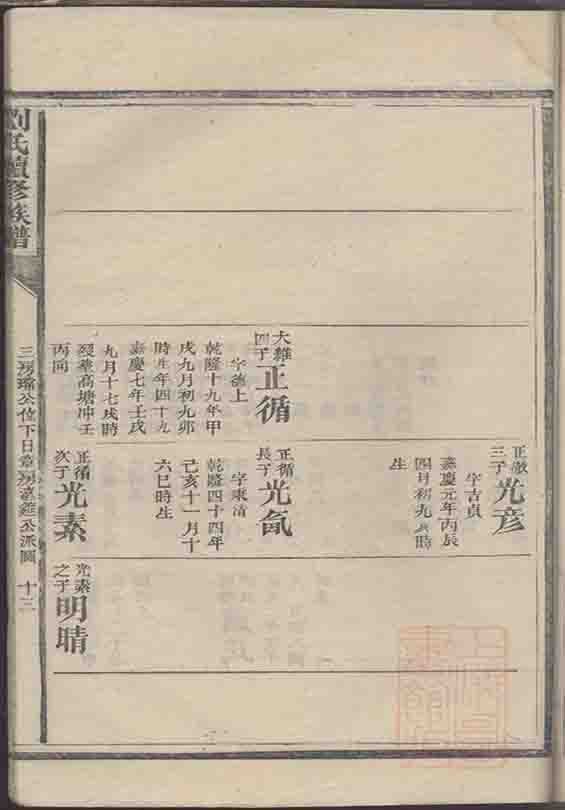 正徽
三子
光彥
字吉貞
嘉慶元年丙辰
四月初九辰時
生
大雜
四子
正循
字德上
乾隆十九年甲
戌九月初九卯
時生年四十九
嘉慶七年壬戌
九月十七戌時
歿葬高塘冲壬
丙向
正循
長子
光氤
字東清
乾隆四十四年
己亥十一月十
六巳時生
正循
次子
光素
光素
之子
明晴
劉氏續修族譜
三房瑜公位下日章房萬鍾公派圖 十三